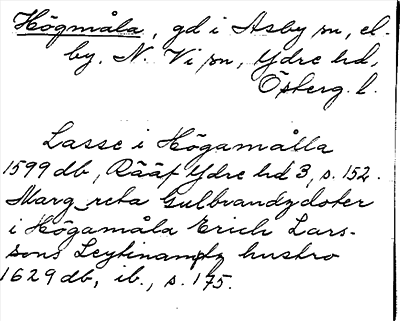 Högmåla, gd i Asby sn, el.
by, N. Vi sn, Ydre hd,
Österg. l.
Lasse i Högamålla
1599 db, Rääf Ydre hd 3, s. 152.
Marg reta Gulbrandzdoter
i Högamåla Erich Lars-
sons Leytinamptz hustro
1629 db, ib., s. 175.